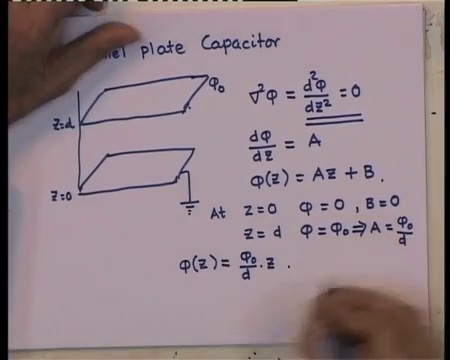 plate Capacitor
φ₀
∇²φ = d²φ/dz² = 0
z=d
dφ/dz = A
φ(z) = Az + B.
z=0
At z=0 φ=0, B=0
z=d φ=φ₀ ⇒ A = φ₀/d
φ(z) = φ₀/d · z .